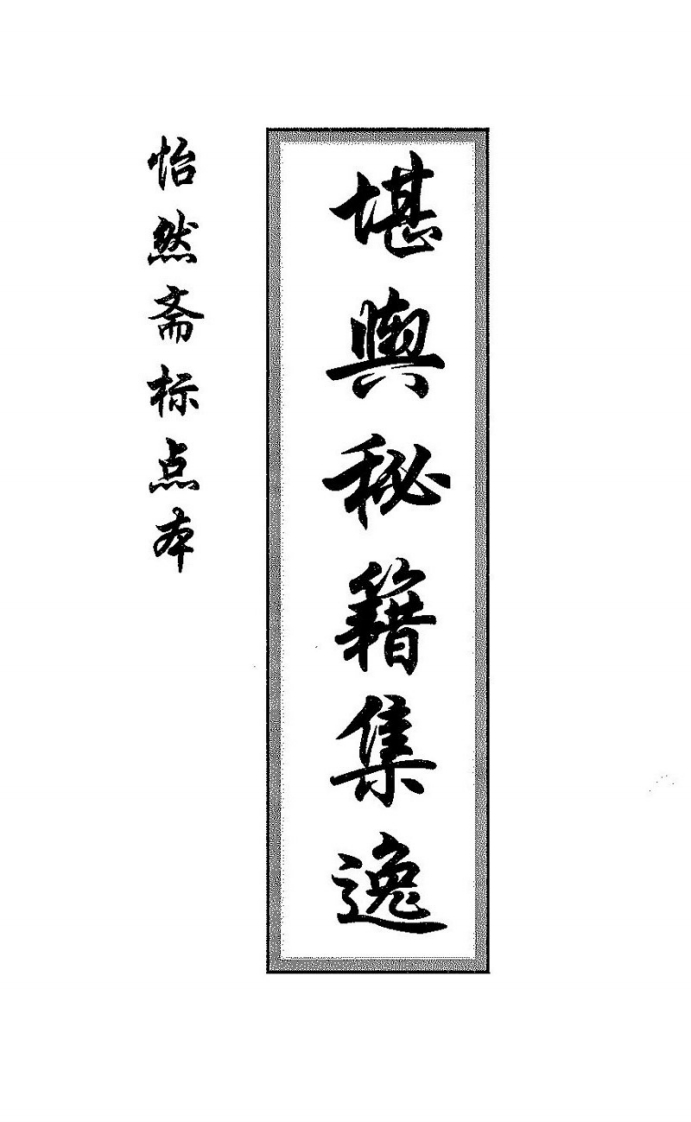 堪舆秘籍集逸
怡然斋标点本